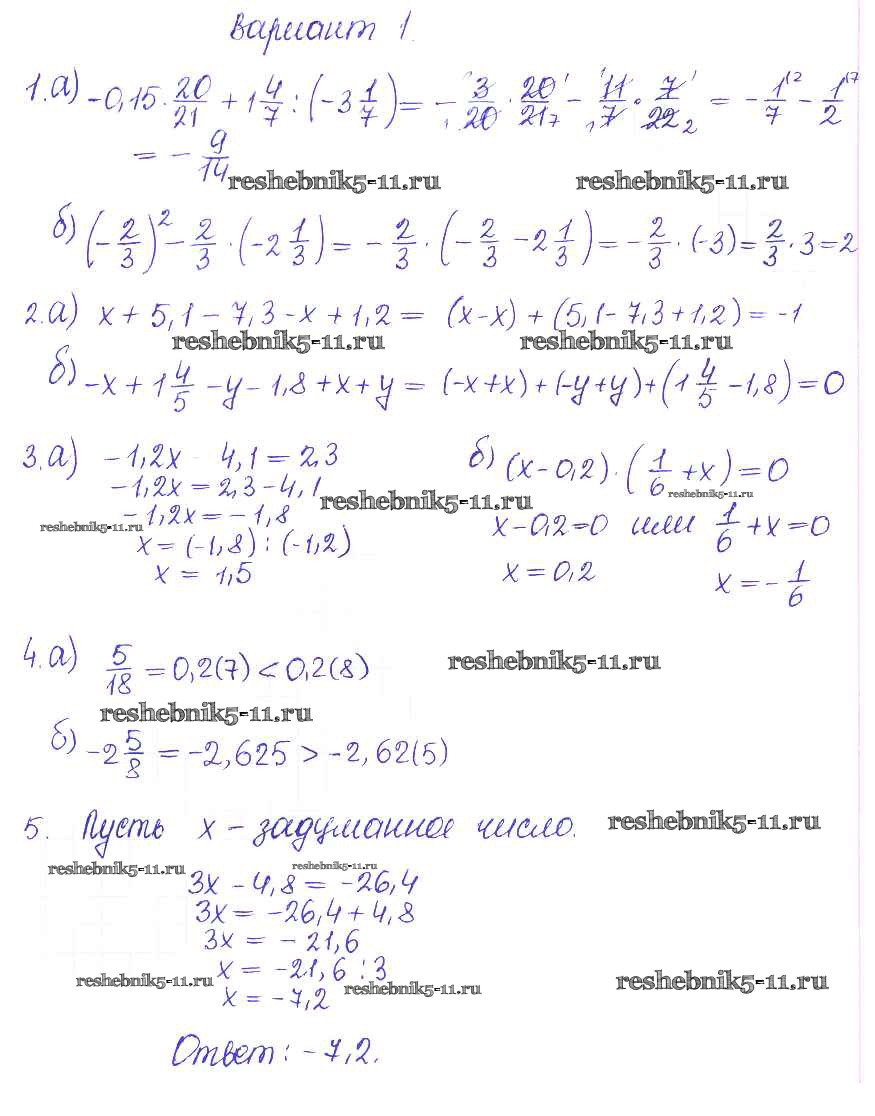 Вариант 1.
1.а) -0,15 · 20/21 + 1 4/7 : (-3 1/7) = - 3/20 · 20/21 - 11/7 · 7/22 = - 1/7 - 1/2
= - 9/14
reshebnik5-11.ru reshebnik5-11.ru
б) (-2/3)² - 2/3 · (-2 1/3) = - 2/3 · (-2/3 - 2 1/3) = - 2/3 · (-3) = 2/3 · 3 = 2
2.а) x + 5,1 - 7,3 - x + 1,2 = (x-x) + (5,1 - 7,3 + 1,2) = -1
reshebnik5-11.ru reshebnik5-11.ru
б) -x + 1 4/5 - y - 1,8 + x + y = (-x+x) + (-y+y) + (1 4/5 - 1,8) = 0
3.а) -1,2x 4,1 = 2,3
-1,2x = 2,3 - 4,1
reshebnik5-11.ru
-1,2x = -1,8
reshebnik5-11.ru
x = (-1,8) : (-1,2)
x = 1,5
б) (x - 0,2) · (1/6 + x) = 0
reshebnik5-11.ru
x - 0,2 = 0 или 1/6 + x = 0
x = 0,2 x = - 1/6
4.а) 5/18 = 0,2(7) < 0,2(8)
reshebnik5-11.ru
reshebnik5-11.ru
б) -2 5/8 = -2,625 > -2,62(5)
5. Пусть x - задуманное число.
reshebnik5-11.ru
reshebnik5-11.ru reshebnik5-11.ru
3x - 4,8 = -26,4
3x = -26,4 + 4,8
3x = - 21,6
x = -21,6 : 3
reshebnik5-11.ru reshebnik5-11.ru reshebnik5-11.ru
x = -7,2
Ответ: -7,2.